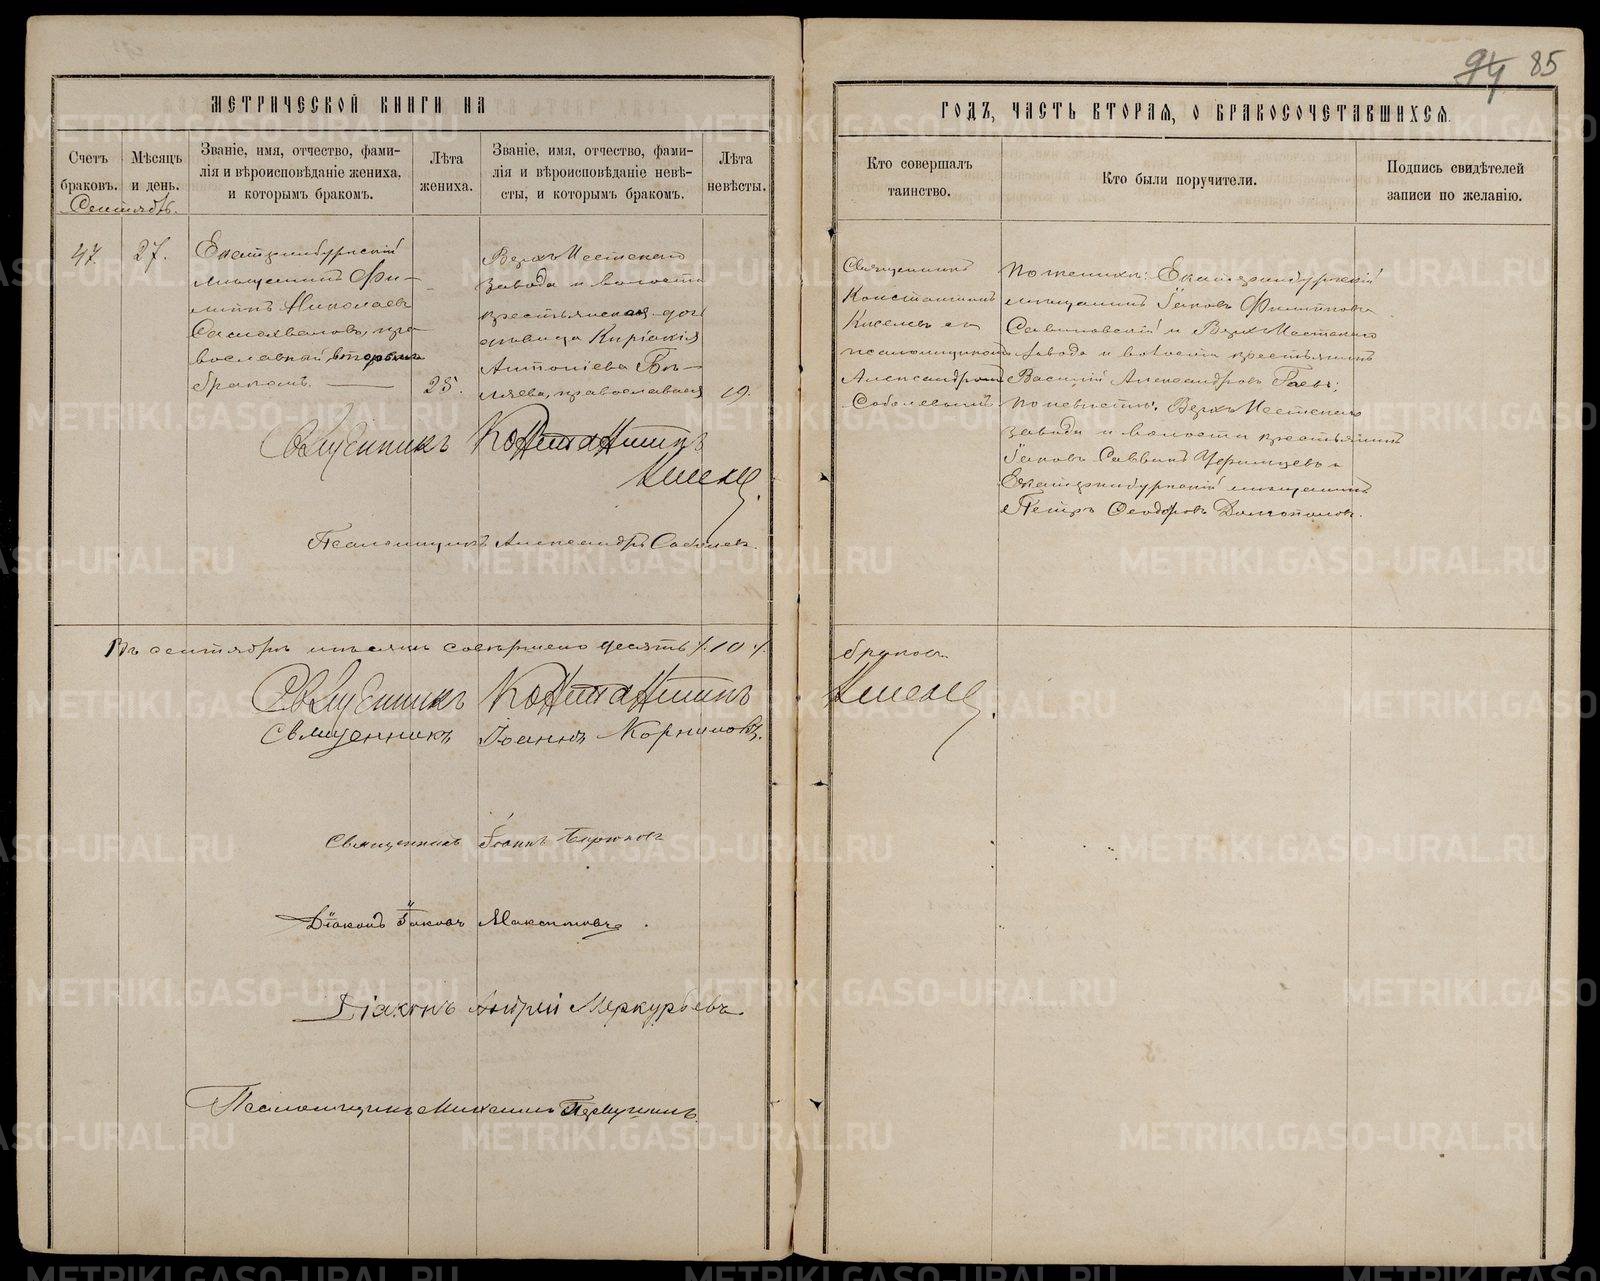 94 85
МЕТРИЧЕСКОЙ КНИГИ НА
ГОДЪ, ЧАСТЬ ВТОРАЯ, О БРАКОСОЧЕТАВШИХСЯ.
Счетъ
браковъ.
Мѣсяцъ
и день.
Званіе, имя, отчество, фами-
лія и вѣроисповѣданіе жениха,
и которымъ бракомъ.
Лѣта
жениха.
Званіе, имя, отчество, фами-
лія и вѣроисповѣданіе невѣ-
сты, и которымъ бракомъ.
Лѣта
невѣсты.
Кто совершалъ
таинство.
Кто были поручители.
Подпись свидѣтелей
записи по желанію.
Сентябрь.
47.
27.
Екатеринбургскій
мѣщанинъ Фи-
липпъ Николаевъ
пра-
вославный, вторымъ
бракомъ.
25.
Верхъ-Исетскаго
завода и волости
крестьянская до-
Киріакія
Антоніева Бѣ-
ляева, православная
19.
Священникъ
Константинъ
съ
псаломщикомъ
Александромъ
Соболевымъ
По женихѣ: Екатеринбургскій
мѣщанинъ Іаковъ Филипповъ
Савиновскій и Верхъ-Исетскаго
завода и волости крестьянинъ
Василій Александровъ Гаевъ;
По невѣстѣ: Верхъ-Исетскаго
завода и волости крестьянинъ
Іаковъ Саввинъ Уфимцевъ и
Екатеринбургскій мѣщанинъ
Петръ Ѳеодоровъ
Священникъ Константинъ
Псаломщикъ Александръ Соболевъ.
Въ сентябрѣ мѣсяцѣ совершено десять /10/ браковъ.
Священникъ Константинъ
Священникъ Іоаннъ Корниловъ.
Священникъ Іоаннъ Бирюковъ
Діаконъ Іаковъ Максимовъ.
Діаконъ Андрей Меркурьевъ.
Псаломщикъ Михаилъ Первушинъ
METRIKI.GASO-URAL.RU